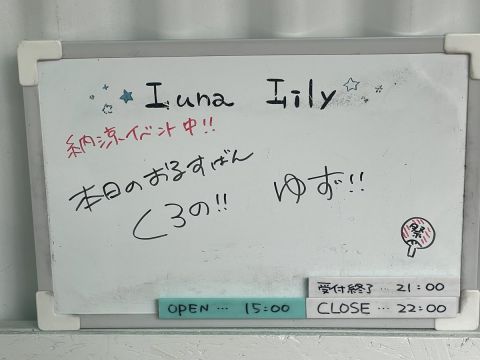 Luna Lily
納涼イベント中!!
本日のおるすばん
くろの!! ゆず!!
祭
受付終了… 21:00
OPEN… 15:00
CLOSE… 22:00